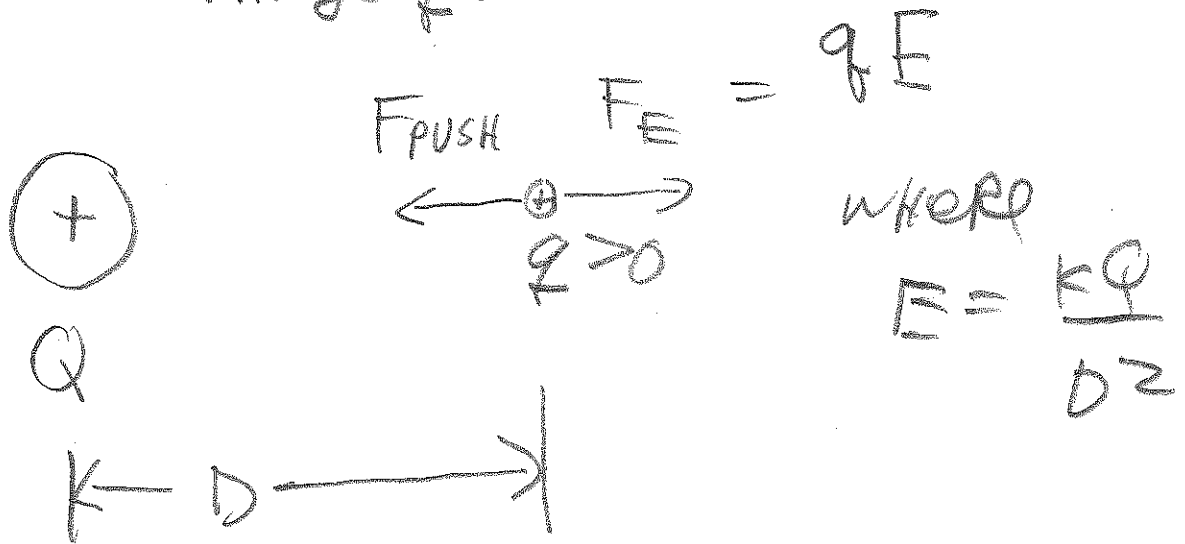 F_PUSH F_E = qE
+
+
q > 0
where
E = kQ / D²
Q
D